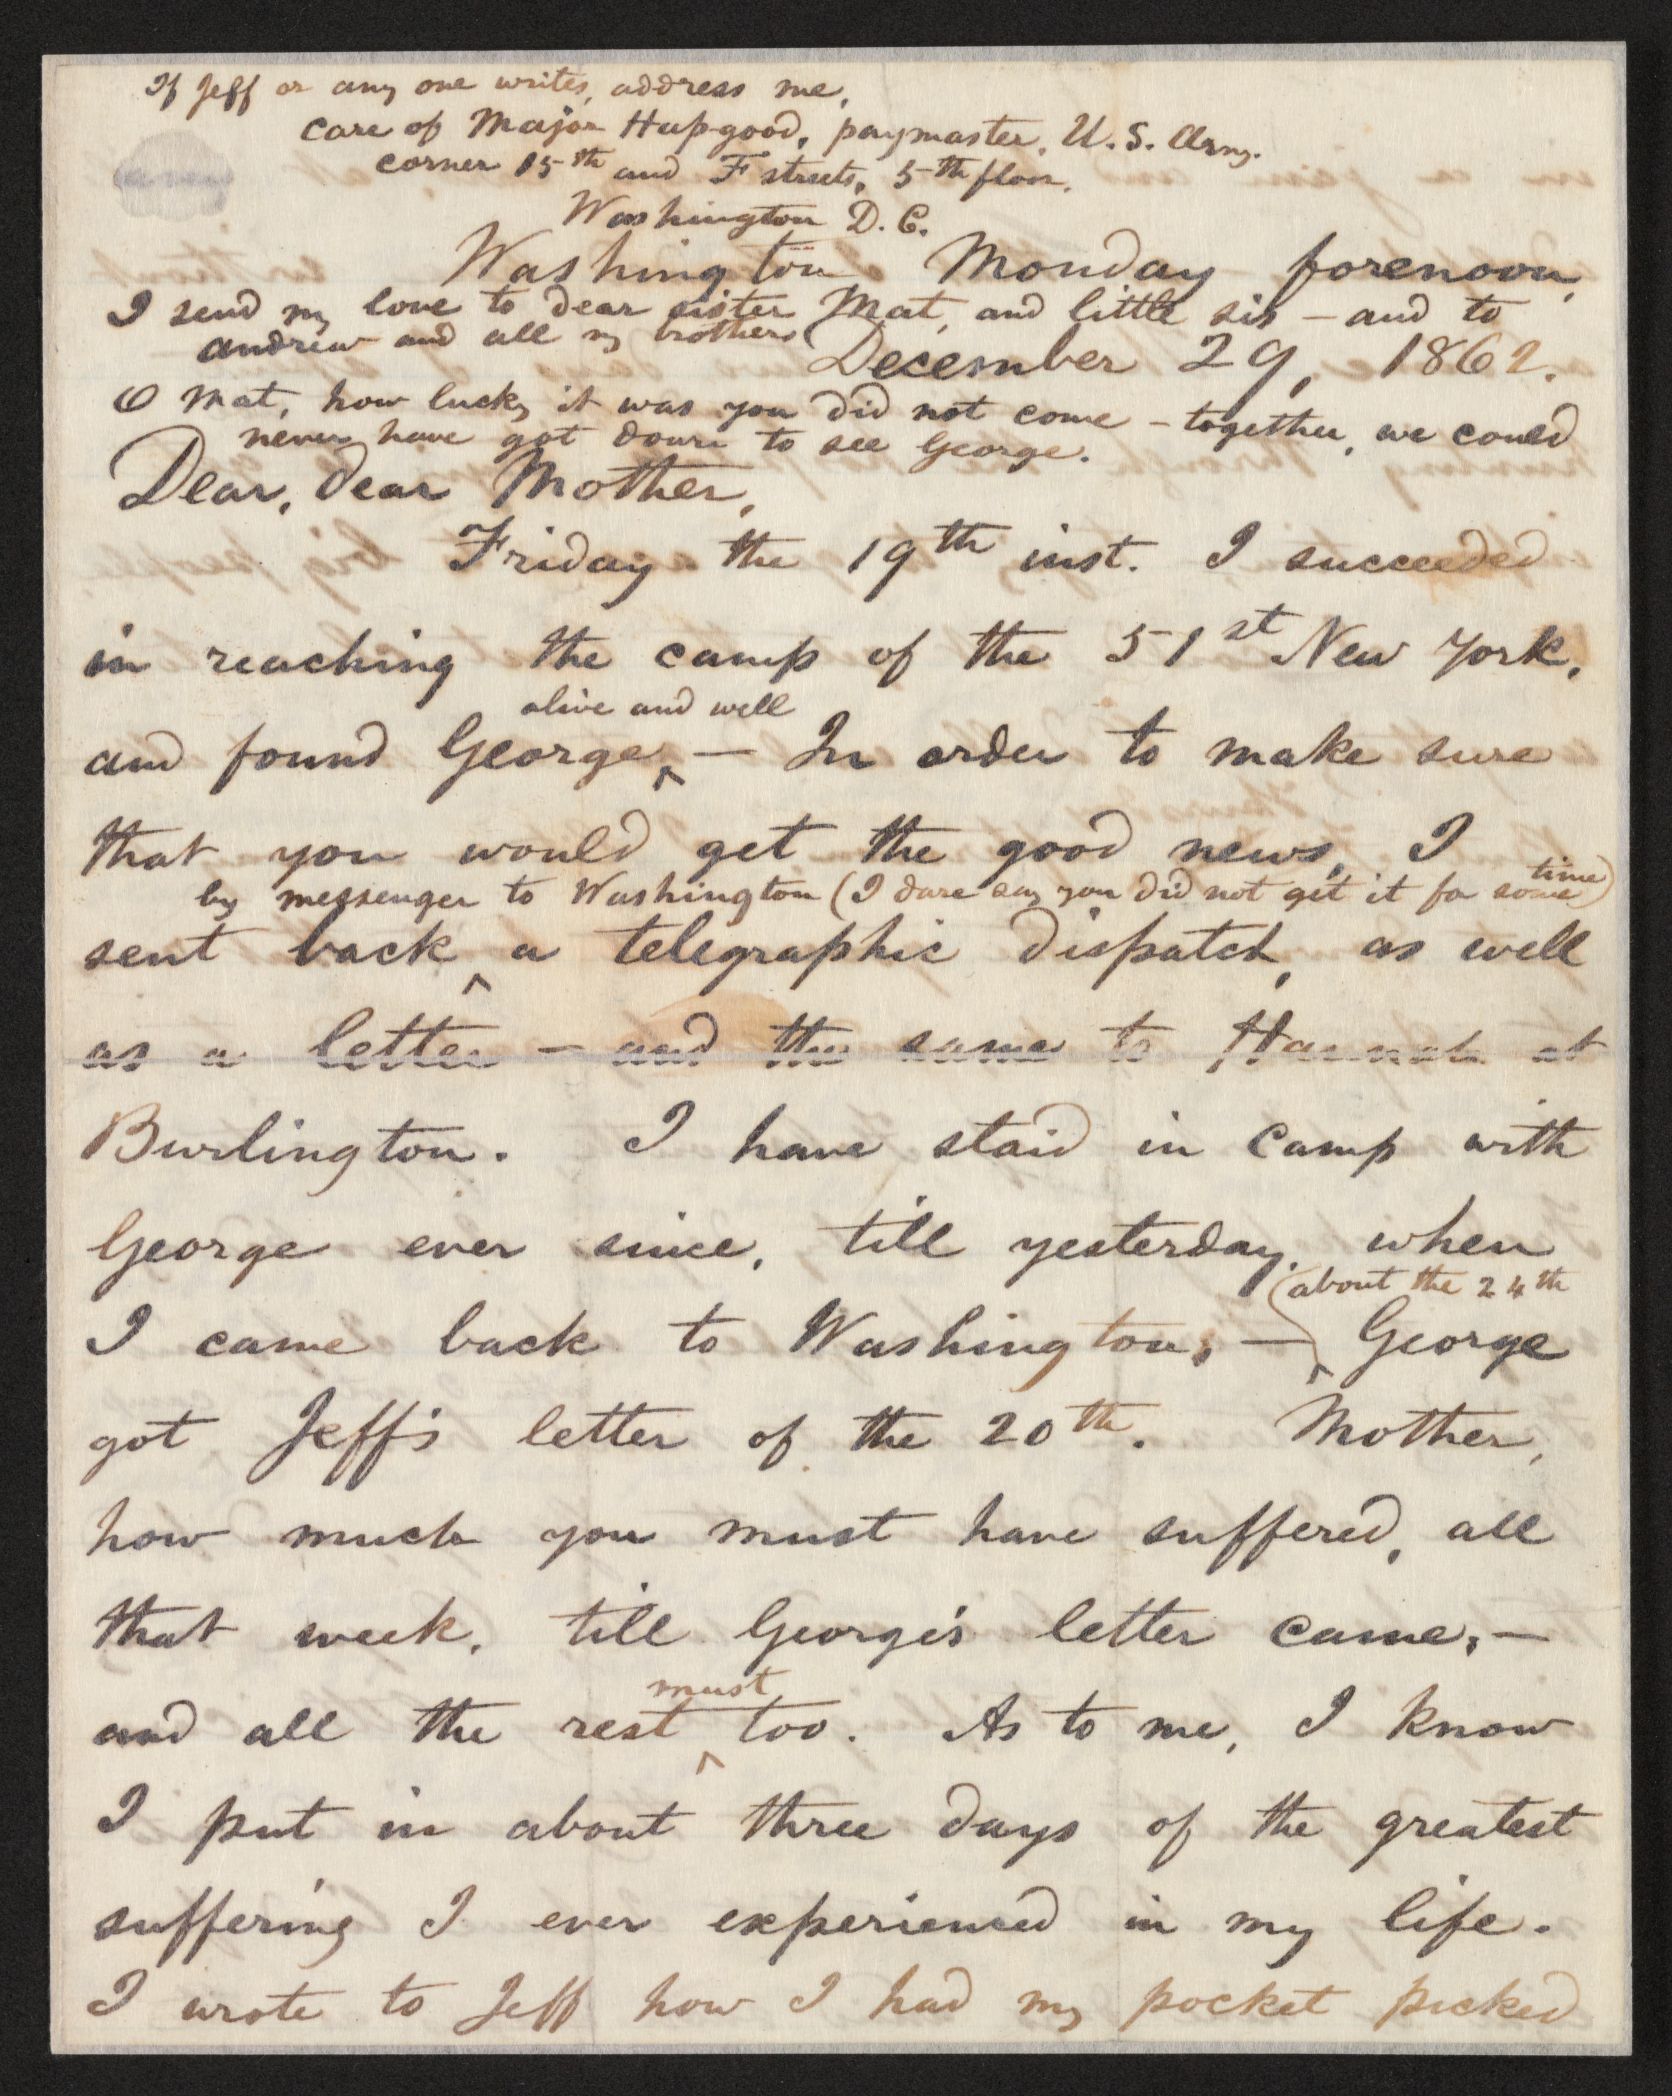 If Jeff or any one writes, address me,
care of Major Hapgood, paymaster, U.S. Army.
corner 15th and F streets, 5th floor.
Washington D.C.
Washington Monday forenoon,
I send my love to dear sister Mat, and little sis – and to
Andrew and all my brothers
December 29, 1862.
O Mat, how lucky it was you did not come – together, we could
never have got down to see George.
Dear, dear Mother,
Friday the 19th inst. I succeeded
in reaching the camp of the 51st New York,
alive and well
and found George – In order to make sure
that you would get the good news, I
time
by messenger to Washington (I dare say you did not get it for some )
sent back a telegraphic dispatch, as well
as a letter – and the same to Hannah at
Burlington. I have staid in camp with
George ever since, till yesterday, when
(about the 24th
I came back to Washington, – George
got Jeff's letter of the 20th. Mother,
how much you must have suffered, all
that week, till George's letter came, –
must
and all the rest too. As to me, I know
I put in about three days of the greatest
suffering I ever experienced in my life.
I wrote to Jeff how I had my pocket picked